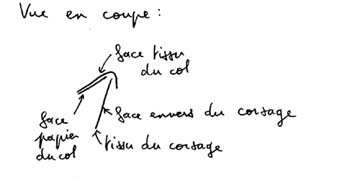 Vue en coupe :
face tissu
du col
face envers du corsage
face
papier
du col
tissu du corsage